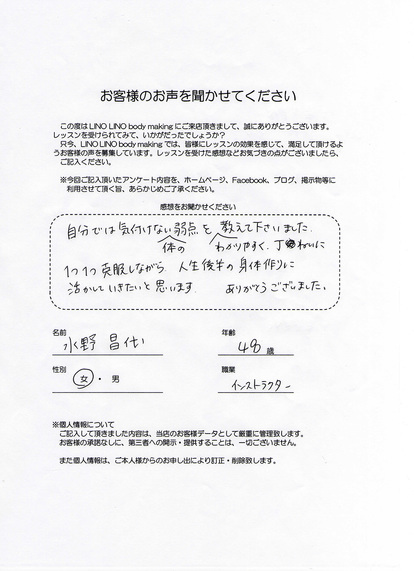 お客様のお声を聞かせてください
この度はLINO LINO body makingにご来店頂きまして、誠にありがとうございます。
レッスンを受けられてみて、いかがだったでしょうか?
只今、LINO LINO body makingでは、皆様にレッスンの効果を感じて、満足して頂けるよ
うお客様の声を募集しています。レッスンを受けた感想などお気づきの点がございましたら、
ご記入ください。
※今回ご記入頂いたアンケート内容を、ホームページ、Facebook、ブログ、掲示物等に
利用させて頂く旨、あらかじめご了承ください。
感想をお聞かせください
自分では気付けない弱点を教えて下さいました。
体の わかりやすく、丁ねいに
1つ1つ克服しながら 人生後半の身体作りに
活かしていきたいと思います。 ありがとうございました。
名前 年齢
水野 昌代 48 歳
性別 職業
女・男 インストラクター
※個人情報について
ご記入して頂きました内容は、当店のお客様データとして厳重に管理致します。
お客様の承諾なしに、第三者への開示・提供することは、一切ございません。
また個人情報は、ご本人様からのお申し出により訂正・削除致します。